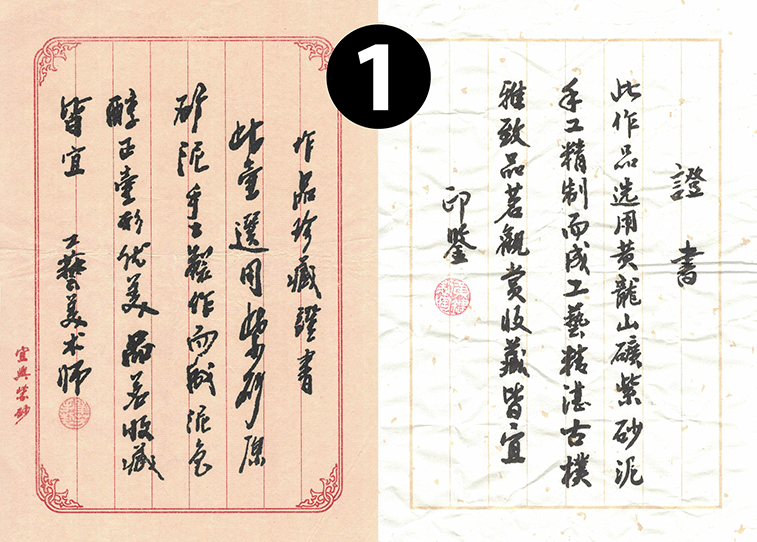 1
作品珍藏證書
此壺選用紫砂原
矿泥手工製作而成泥色
醇正壺形优美品茗收藏
皆宜
工藝美术师
宜興紫砂
證書
此作品选用黄龍山礦紫砂泥
手工精制而成工藝精湛古樸
雅致品茗觀赏收藏皆宜
印鑒